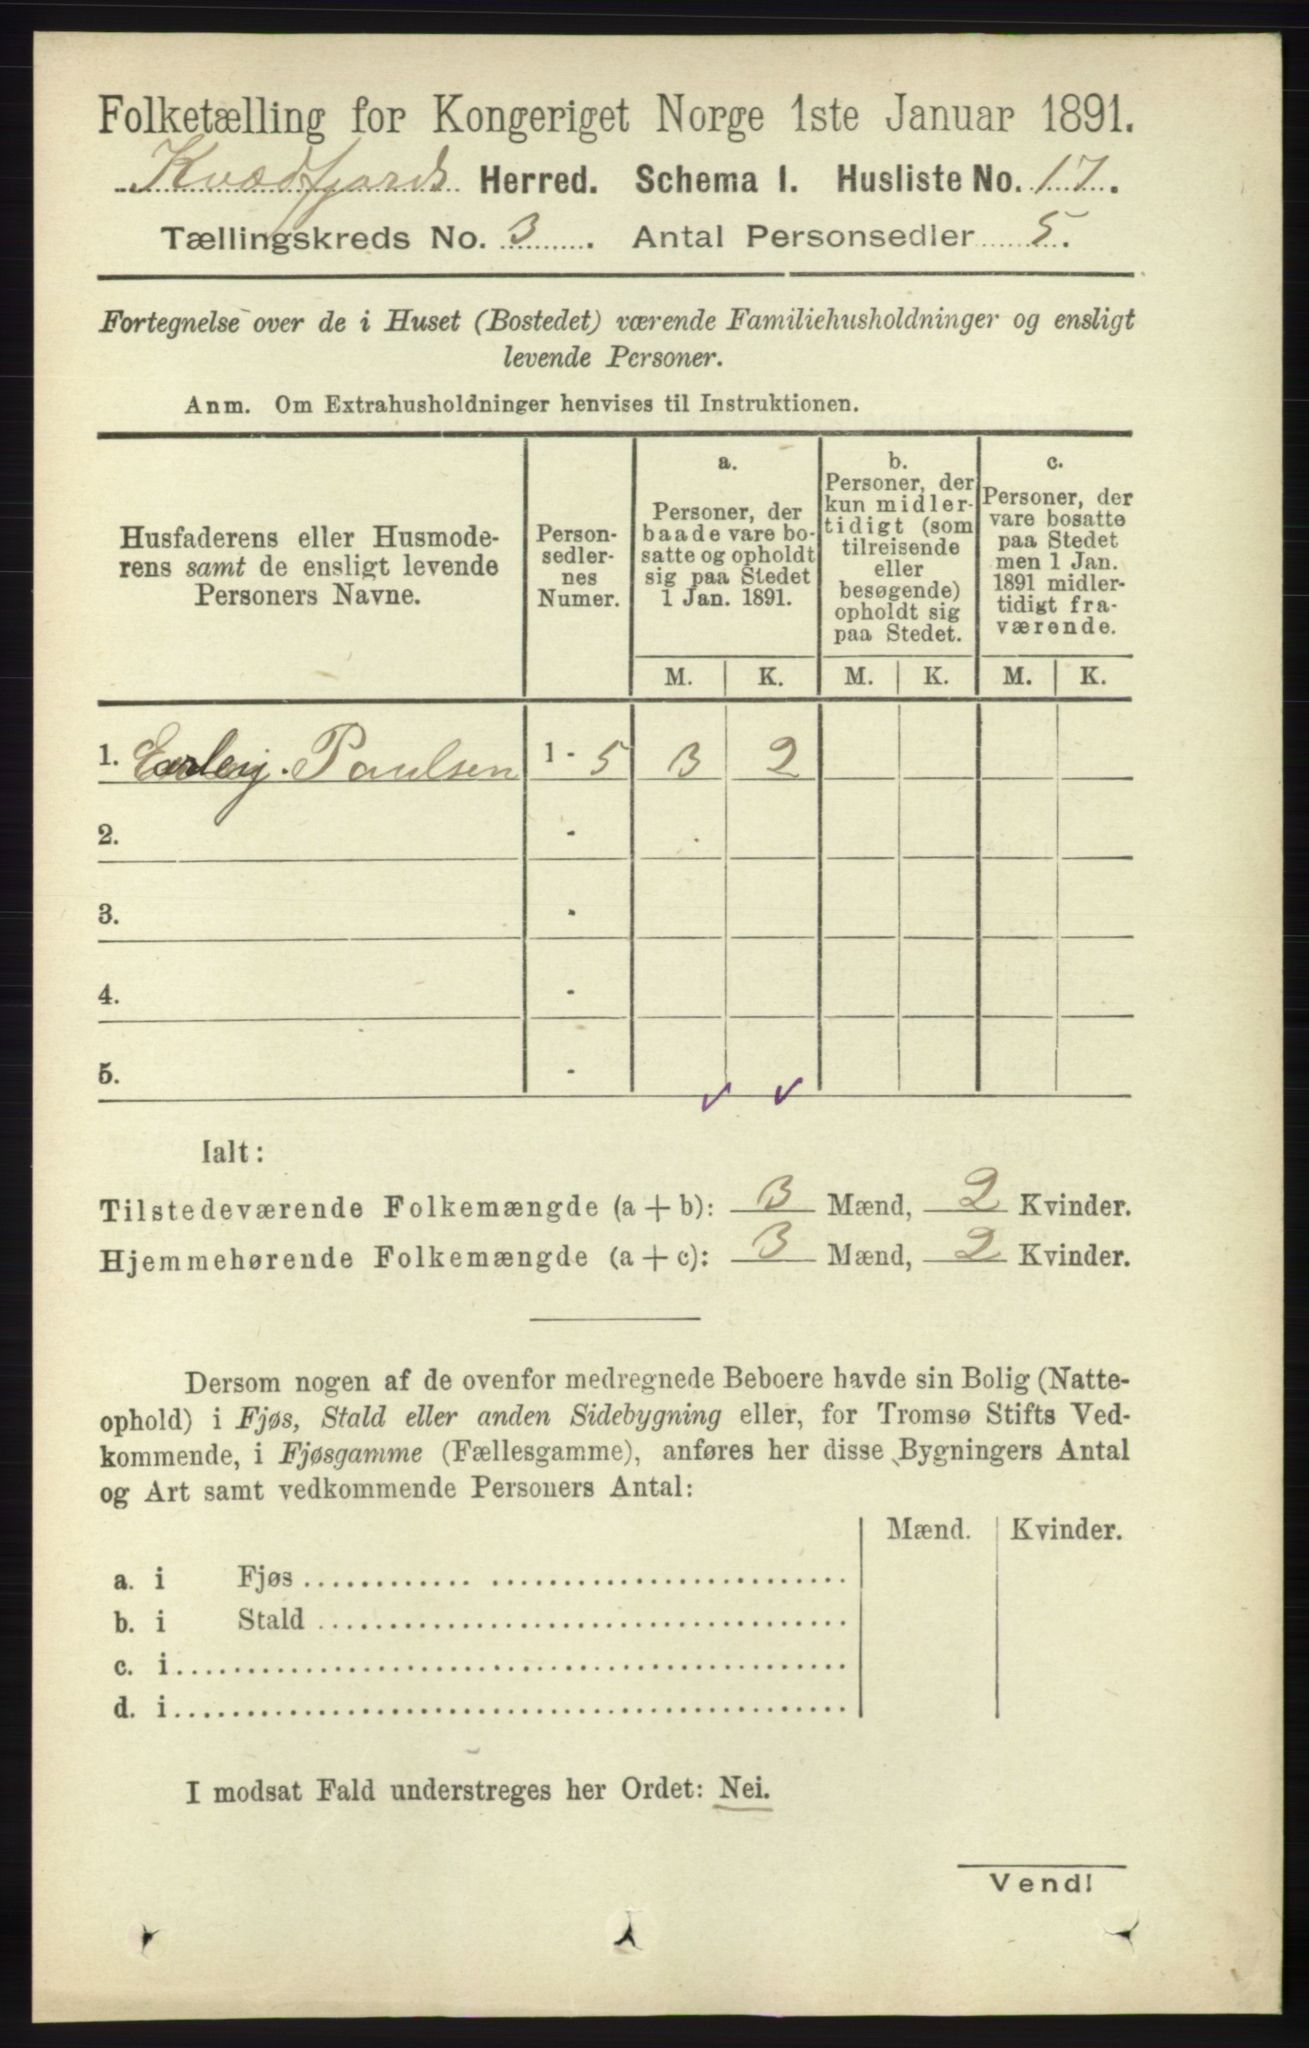 Folketælling for Kongeriget Norge 1ste Januar 1891.
Kvædfjords Herred. Schema 1. Husliste No. 17.
Tællingskreds No. 3. Antal Personsedler 5.
Fortegnelse over de i Huset (Bostedet) værende Familiehusholdninger og ensligt
levende Personer.
Anm. Om Extrahusholdninger henvises til Instruktionen.
Husfaderens eller Husmode-
rens samt de ensligt levende
Personers Navne.
Person-
sedler-
nes
Numer.
a.
Personer, der
baade vare bo-
satte og opholdt
sig paa Stedet
1 Jan. 1891.
b.
Personer, der
kun midler-
tidigt (som
tilreisende
eller
besøgende)
opholdt sig
paa Stedet.
c.
Personer, der
vare bosatte
paa Stedet
men 1 Jan.
1891 midler-
tidigt fra-
værende.
M. K. M. K. M. K.
1. Paulsen 1 - 5 3 2
2. -
3. -
4. -
5. -
Ialt:
Tilstedeværende Folkemængde (a + b): 3 Mænd, 2 Kvinder.
Hjemmehørende Folkemængde (a + c): 3 Mænd, 2 Kvinder.
Dersom nogen af de ovenfor medregnede Beboere havde sin Bolig (Natte-
ophold) i Fjøs, Stald eller anden Sidebygning eller, for Tromsø Stifts Ved-
kommende, i Fjøsgamme (Fællesgamme), anføres her disse Bygningers Antal
og Art samt vedkommende Personers Antal:
Mænd. Kvinder.
a. i Fjøs
b. i Stald
c. i
d. i
I modsat Fald understreges her Ordet: Nei.
Vend!